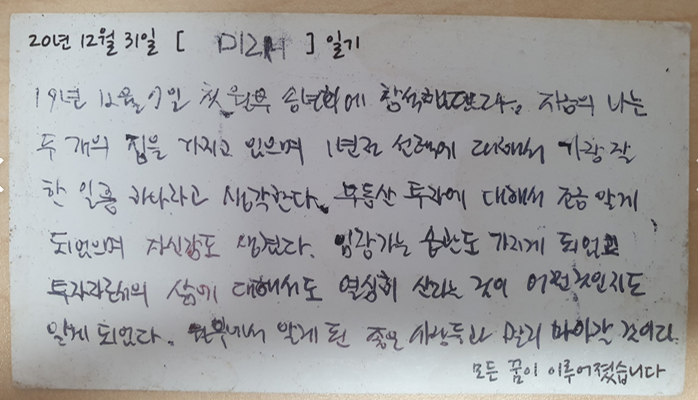 20년 12월 31일 [ 미래 ] 일기
19년 12월 7일 첫 월부 송년회에 참석했었다. 지금의 나는
두 개의 집을 가지고 있으며 1년전 선택에 대해서 가장 잘
한 일중 하나라고 생각한다. 부동산 투자에 대해서 조금 알게
되었으며 자신감도 생겼다. 임장가는 습관도 가지게 되었고
투자자로서의 삶에 대해서도 열심히 산다는 것이 어떤것인지도
알게 되었다. 월부에서 알게 된 좋은 사람들과 멀리 나아갈 것이다.
모든 꿈이 이루어졌습니다